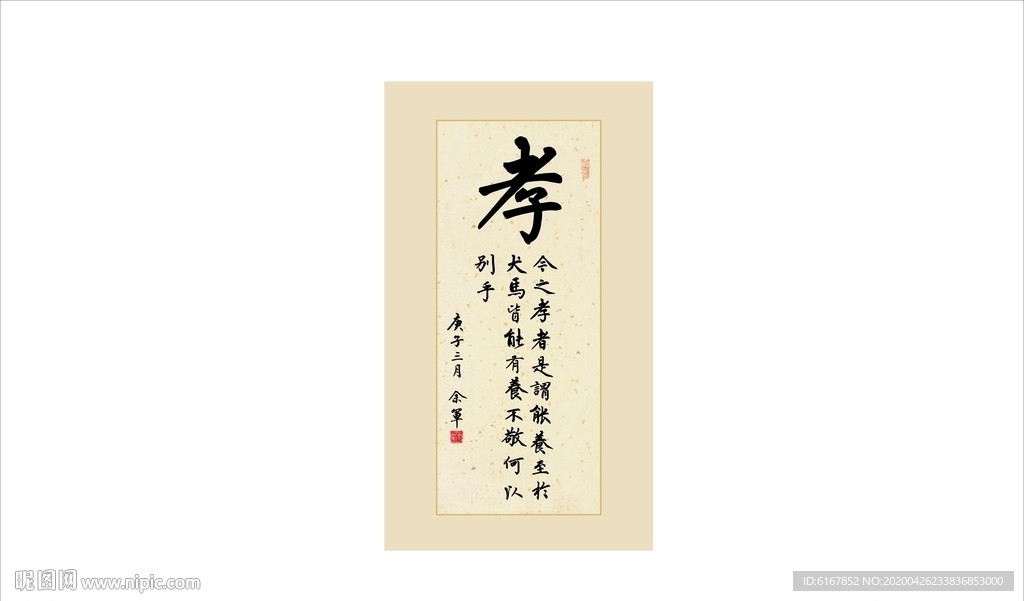 孝
今之孝者是謂能養至於
犬馬皆能有養不敬何以
别乎
庚子三月 余軍
昵图网 www.nipic.com
ID:6167852 NO:20200426233836853000